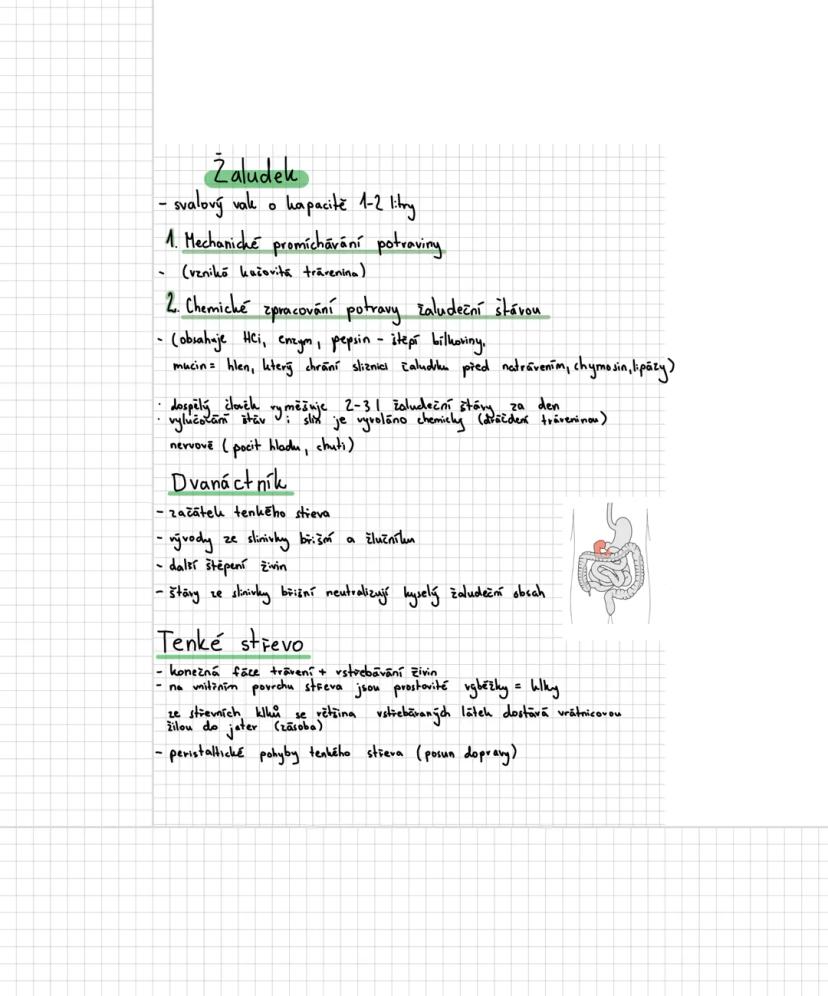 Žaludek
- svalový vak o kapacitě 1-2 litry
1. Mechanické promíchávání potraviny
- (vzniká kašovitá trávenina)
2. Chemické zpracování potravy žaludeční šťávou
- (obsahuje HCl, enzym, pepsin - štěpí bílkoviny,
mucin = hlen, který chrání sliznici žaludku před natrávením, chymosin, lipázy)
· dospělý člověk vyměšuje 2-3 l žaludeční šťávy za den
· vylučování šťáv i slin je vyvoláno chemicky (dráždění tráveninou)
nervově (pocit hladu, chuti)
Dvanáctník
- začátek tenkého střeva
- vývody ze slinivky břišní a žlučníku
- další štěpení živin
- šťávy ze slinivky břišní neutralizují kyselý žaludeční obsah
Tenké střevo
- konečná fáze trávení + vstřebávání živin
- na vnitřním povrchu střeva jsou prstovité výběžky = klky
ze střevních klků se většina vstřebávaných látek dostává vrátnicovou
žilou do jater (zásoba)
- peristaltické pohyby tenkého střeva (posun dopravy)